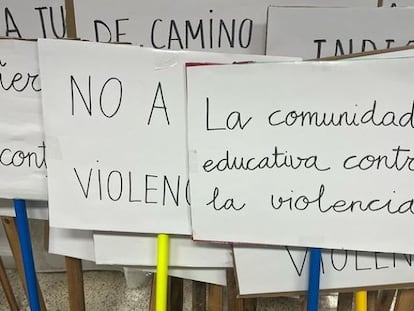 TU DE CAMINO
INDI
cont
NO A
VIOLENC
La comunidad
educativa contra
la violencia
VIOLEN